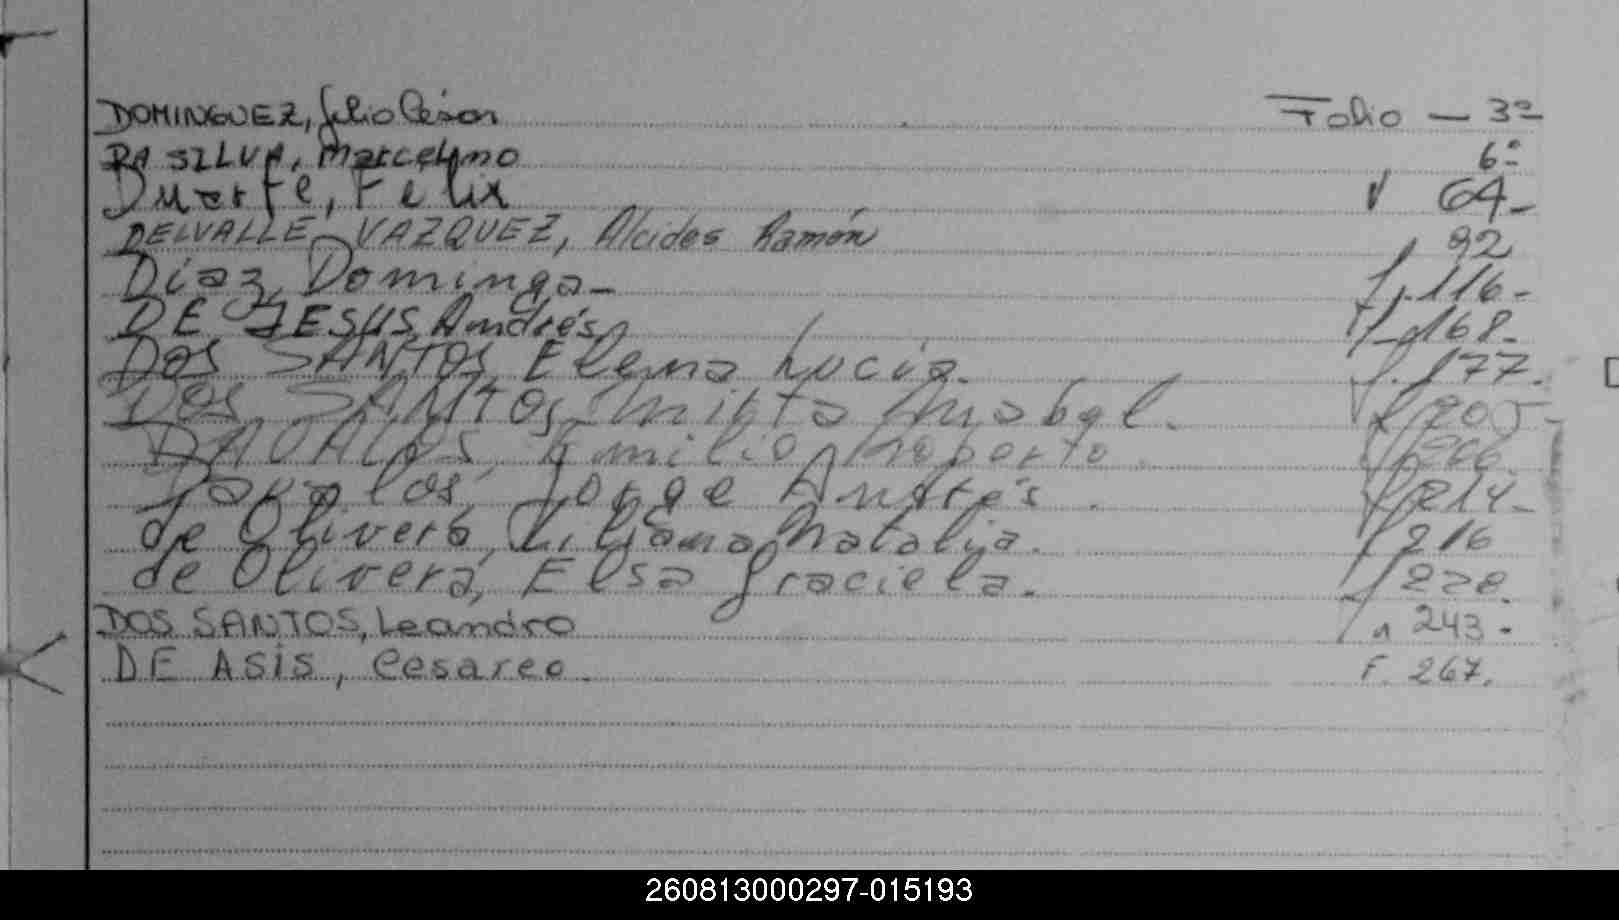 DOMINGUEZ, Julio César Folio - 3º
DA SILVA, Marcelino 6º
Duarte, Felix 64-
DELVALLE VAZQUEZ, Alcides Ramón 92
Díaz, Dominga- f. 116-
DE JESUS, Andrés, f. 168-
DOS SANTOS, Elena Lucía. f. 177.
DOS SANTOS, Mirta Mabel. f 205-
DAVALOS, Emilio Roberto.
Davalos, Jorge Andrés. f 214-
de Olivera, Liliana Natalia. f 216
de Olivera, Elsa Graciela. f 228.
DOS SANTOS, Leandro 243.
DE ASIS, Cesareo. F. 267.
260813000297-015193